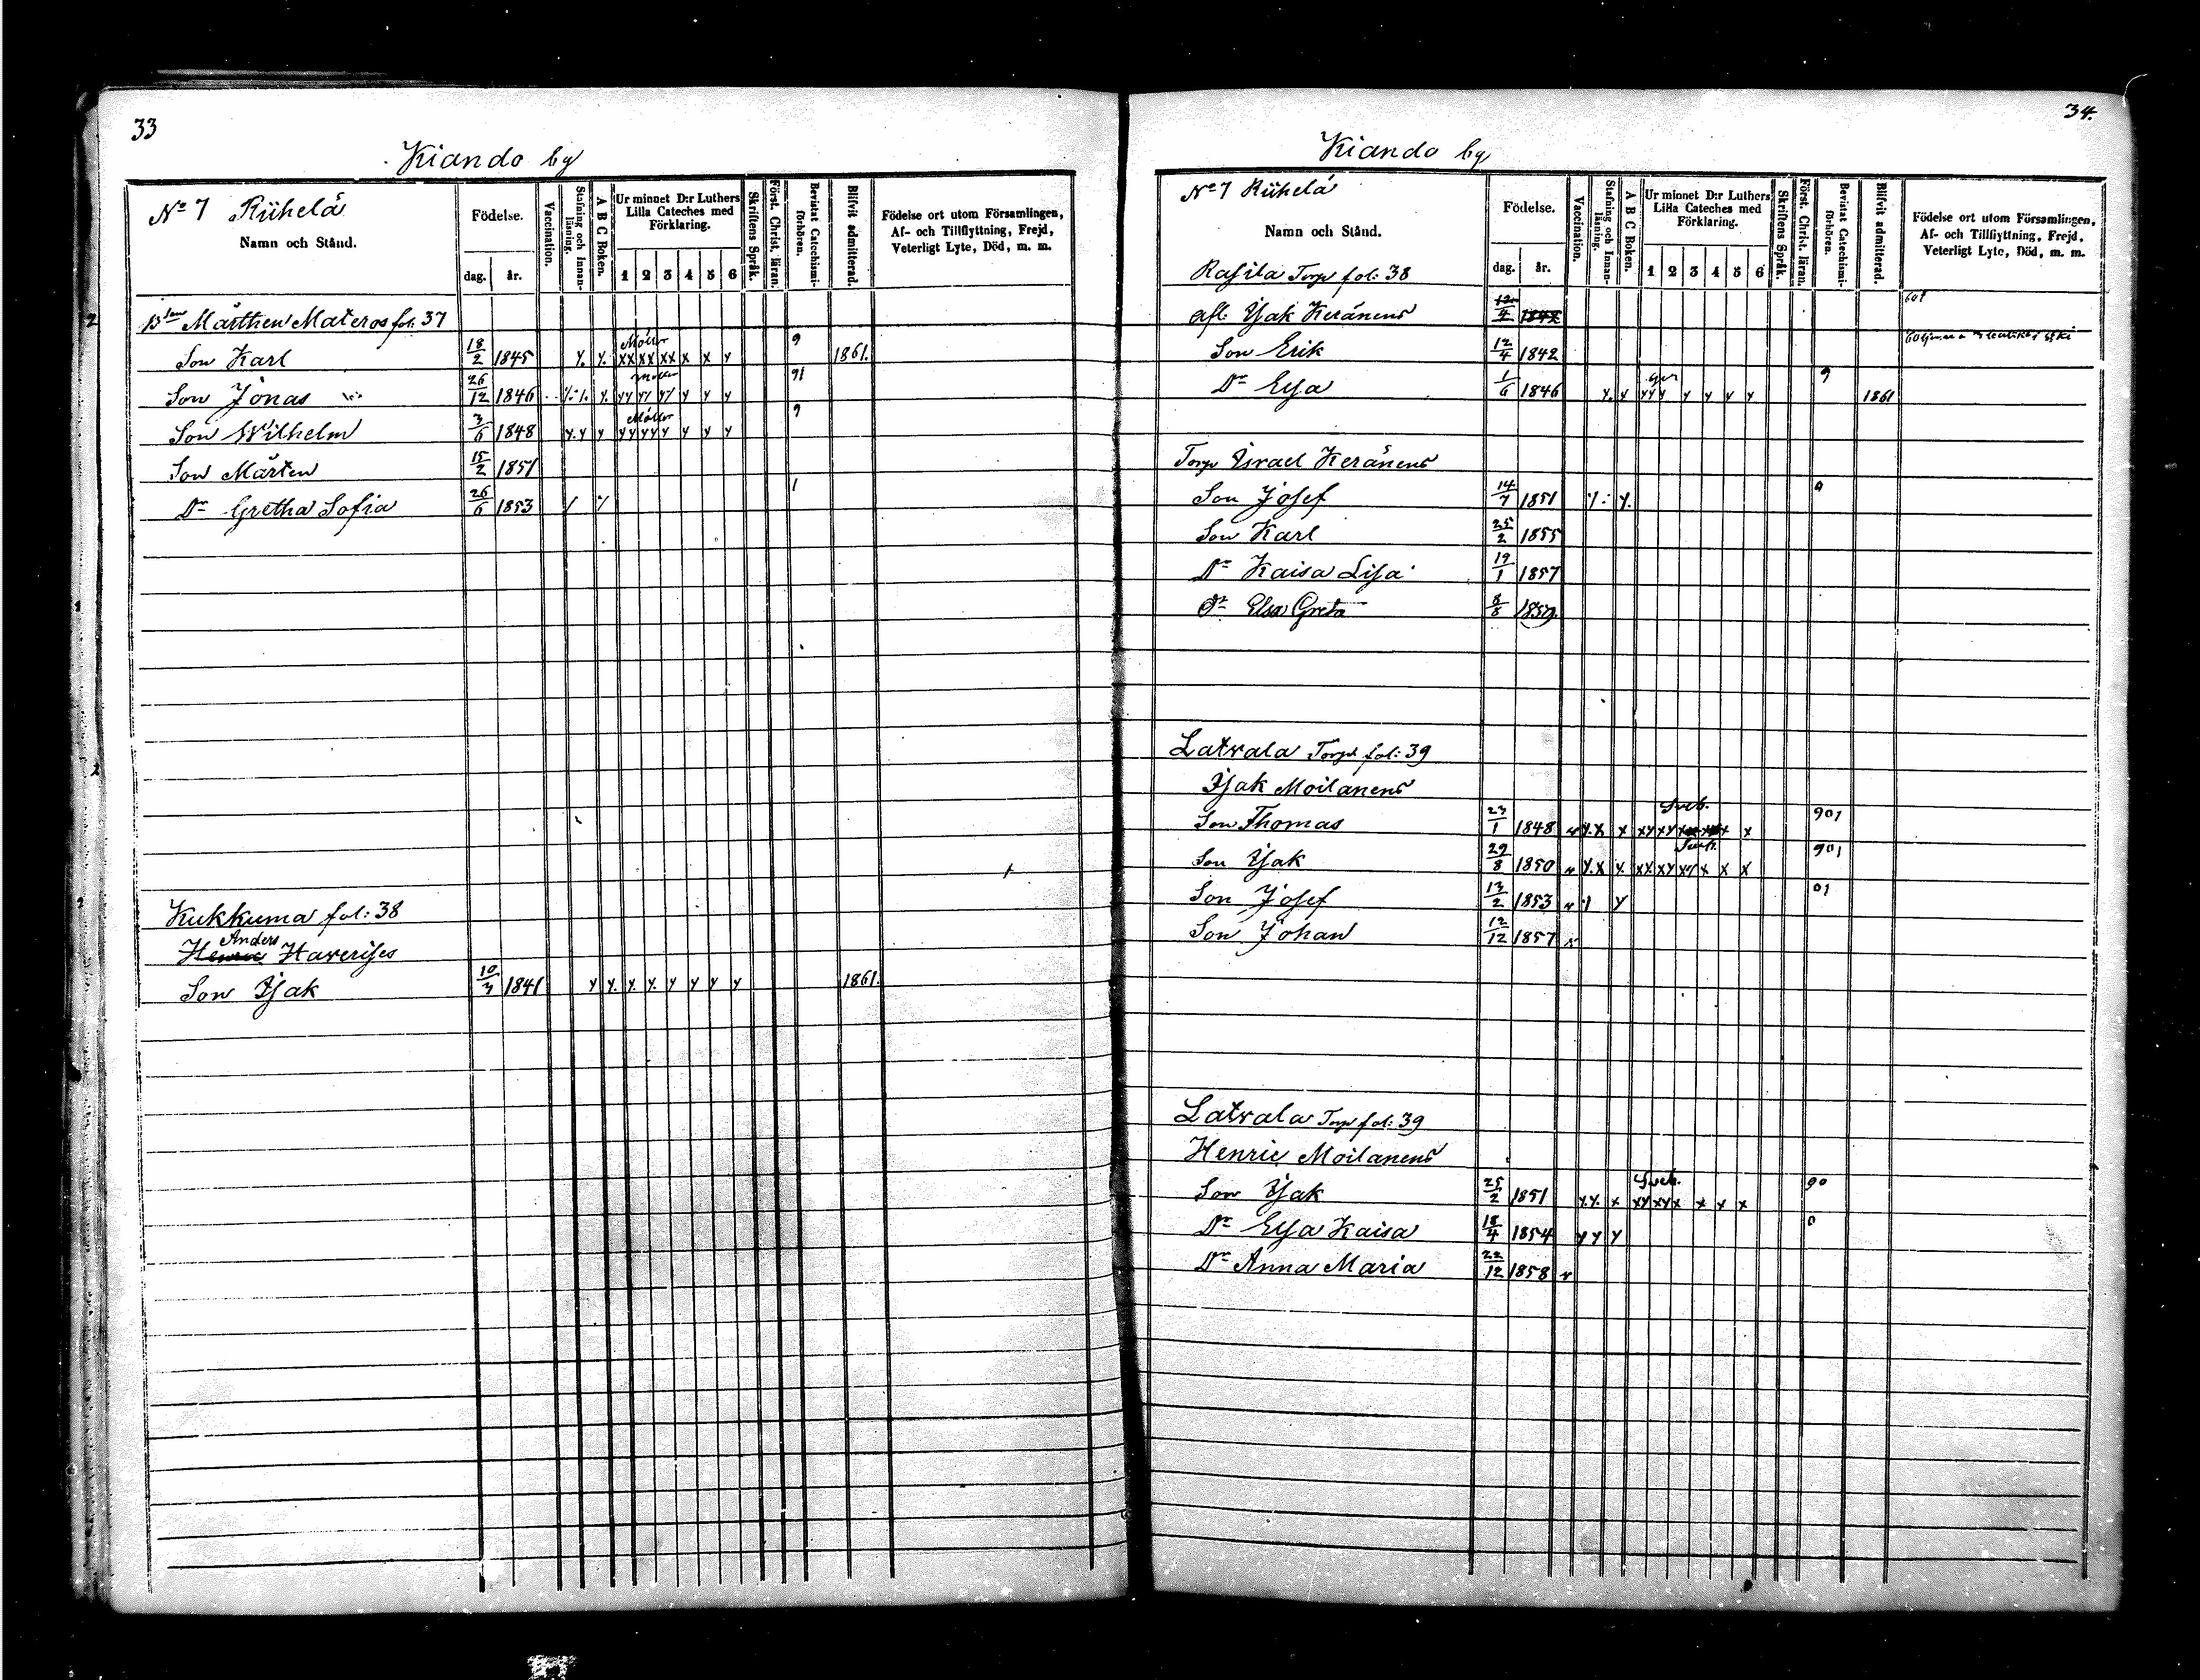 33
Kiando by
No 7 Riihelä
Namn och Stånd.
Födelse.
dag. år.
Vaccination.
Stafning och Innan-läsning.
A B C Boken.
Ur minnet D:r Luthers Lilla Cateches med Förklaring.
1 2 3 4 5 6
Skriftens Språk.
Först. Christ. läran.
Bevistat Catechismi-förhören.
Blifvit admitterad.
Födelse ort utom Församlingen, Af- och Tillflyttning, Frejd, Veterligt Lyte, Död, m. m.
Mårthen Materos fol: 37
Son Karl 18/2 1845 Möller 9 1861.
Son Jonas 26/12 1846 Möller 91
Son Wilhelm 3/6 1848 Möller 9
Son Mårten 15/2 1851
Dr Gretha Sofia 26/6 1853 1
Kukkuma fol: 38
Anders
Henric Haverises
Son Isak 10/3 1841 y y y y y y y y 1861.
34.
Kiando by
No 7 Riihelä
Namn och Stånd.
Födelse.
dag. år.
Vaccination.
Stafning och Innan-läsning.
A B C Boken.
Ur minnet D:r Luthers Lilla Cateches med Förklaring.
1 2 3 4 5 6
Skriftens Språk.
Först. Christ. läran.
Bevistat Catechismi-förhören.
Blifvit admitterad.
Födelse ort utom Församlingen, Af- och Tillflyttning, Frejd, Veterligt Lyte, Död, m. m.
Rasila Torp fol: 38
afl. Isak Keränens 12/4 1842
Son Erik 12/4 1842
Dr Elsa 1/6 1846 9 1861
Torp Israel Keränens
Son Josef 14/7 1851 0
Son Karl 25/2 1855
Dr Kaisa Lisa 19/1 1857
Dr Elsa Greta 8/8 1859.
Latvala Torp fol: 39
Isak Moilanens
Son Thomas 23/1 1848 Sveb. 901
Son Isak 29/8 1850 Sveb. 901
Son Josef 13/2 1853 01
Son Johan 12/12 1857
Latvala Torp fol: 39
Henric Moilanens
Son Isak 25/2 1851 Sveb. 90
Dr Elsa Kaisa 18/4 1854 y y y 0
Dr Anna Maria 22/12 1858